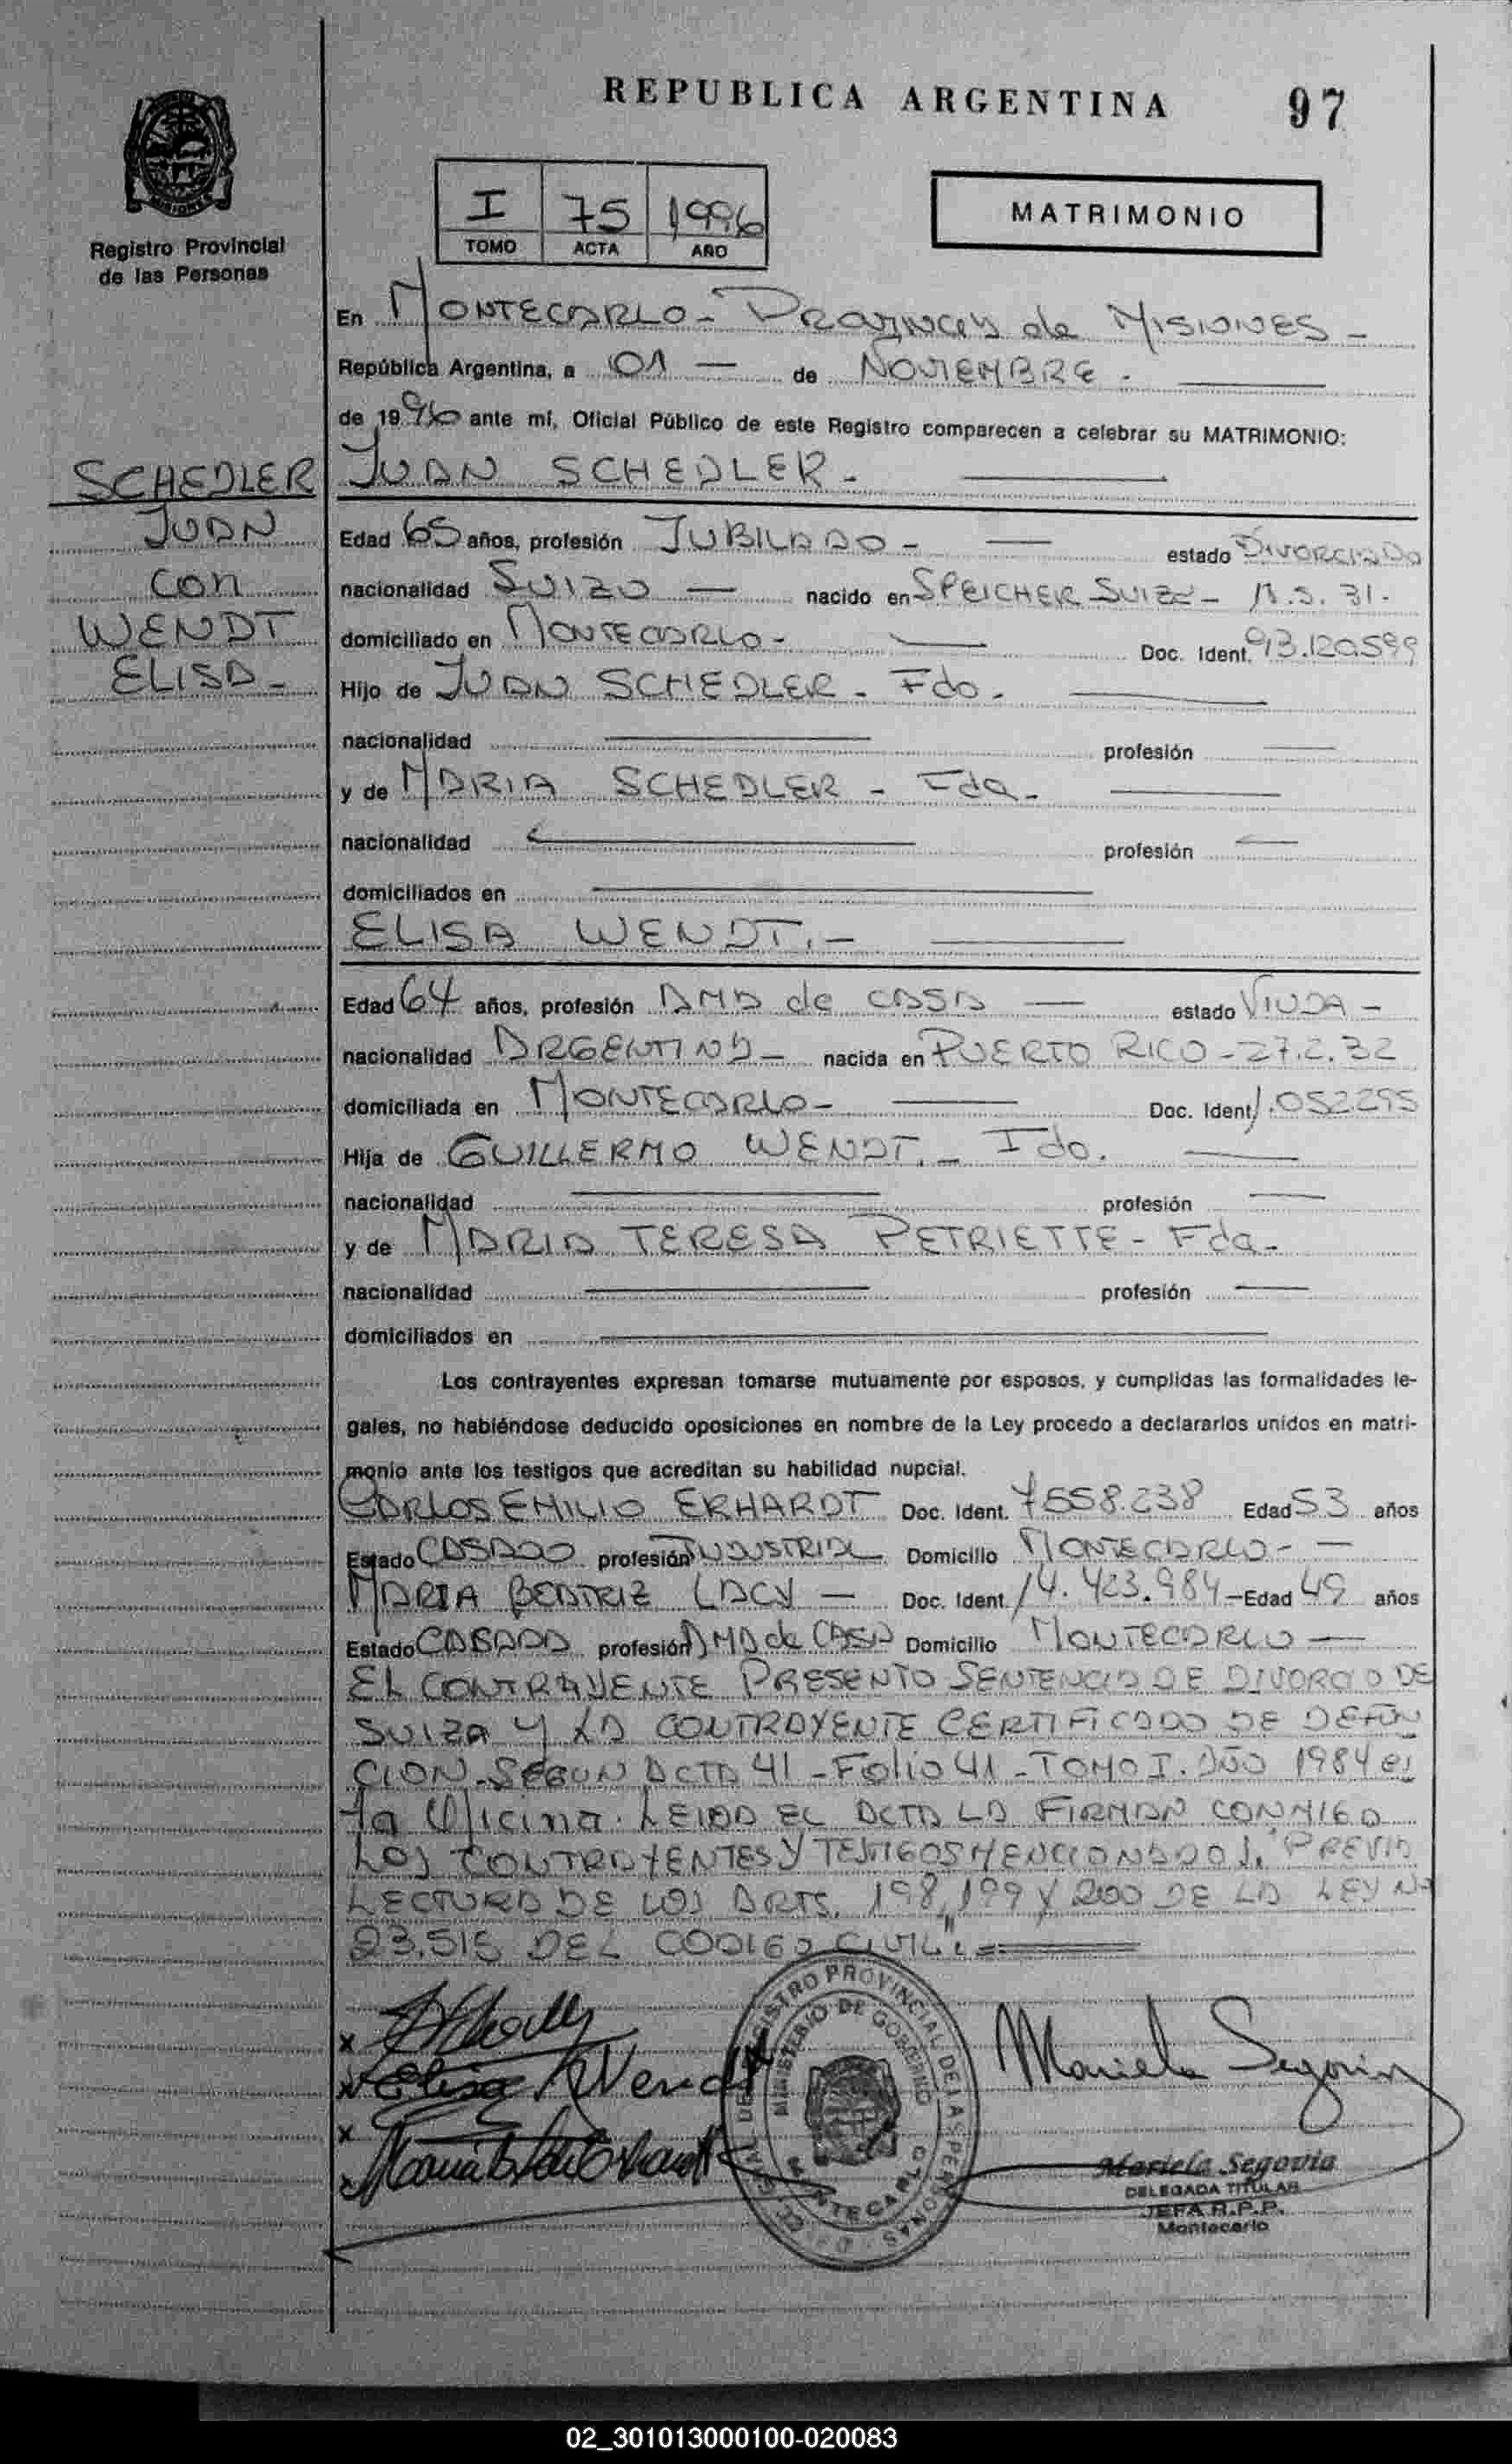 REPUBLICA ARGENTINA 97
I 75 1996
TOMO ACTA AÑO
MATRIMONIO
MISIONES
Registro Provincial
de las Personas
En MONTECARLO - PROVINCIA de MISIONES -
República Argentina, a 01 — de NOVIEMBRE. —
de 1996 ante mí, Oficial Público de este Registro comparecen a celebrar su MATRIMONIO:
SCHEDLER
JUAN
con
WENDT
ELISA -
JUAN SCHEDLER - —
Edad 65 años, profesión JUBILADO - — estado DIVORCIADO
nacionalidad SUIZO — nacido en SPEICHER SUIZA - 31.
domiciliado en MONTECARLO - — Doc. Ident. 93.120.599
Hijo de JUAN SCHEDLER - Fdo. —
nacionalidad — profesión —
y de MARIA SCHEDLER - Fda - —
nacionalidad — profesión —
domiciliados en —
ELISA WENDT. - —
Edad 64 años, profesión AMA de CASA — estado VIUDA -
nacionalidad ARGENTINA - nacida en PUERTO RICO - 27.2.32
domiciliada en MONTECARLO - — Doc. Ident.
Hija de GUILLERMO WENDT. - Fdo. —
nacionalidad — profesión —
y de MARIA TERESA PETRIETTE - Fda -
nacionalidad — profesión —
domiciliados en —
Los contrayentes expresan tomarse mutuamente por esposos, y cumplidas las formalidades le-
gales, no habiéndose deducido oposiciones en nombre de la Ley procedo a declararlos unidos en matri-
monio ante los testigos que acreditan su habilidad nupcial.
CARLOS EMILIO ERHARDT Doc. Ident. 7558.238 Edad 53 años
Estado CASADO profesión INDUSTRIAL Domicilio MONTECARLO - —
MARIA BEATRIZ LACY — Doc. Ident. 14.423.984 - Edad 49 años
Estado CASADA profesión AMA de CASA Domicilio MONTECARLO —
EL CONTRAYENTE PRESENTO SENTENCIA DE DIVORCIO DE
SUIZA Y LA CONTRAYENTE CERTIFICADO DE DEFUN
CION - SEGUN ACTA 41 - Folio 41 - TOMO I. AÑO 1984 es
ta Oficina. LEIDA EL ACTA LA FIRMAN CONMIGO
LOS CONTRAYENTES Y TESTIGOS MENCIONADOS. "PREVIA
LECTURA DE LOS ARTS. 198, 199 Y 200 DE LA LEY Nº
23.515 DEL CODIGO CIVIL" . =
x
x Elisa Wendt
x
x
REGISTRO PROVINCIAL DE LAS PERSONAS
MINISTERIO DE GOBIERNO
MONTECARLO
Mariela Segovia
Mariela Segovia
DELEGADA TITULAR
JEFA R.P.P.
Montecarlo
02_301013000100-020083